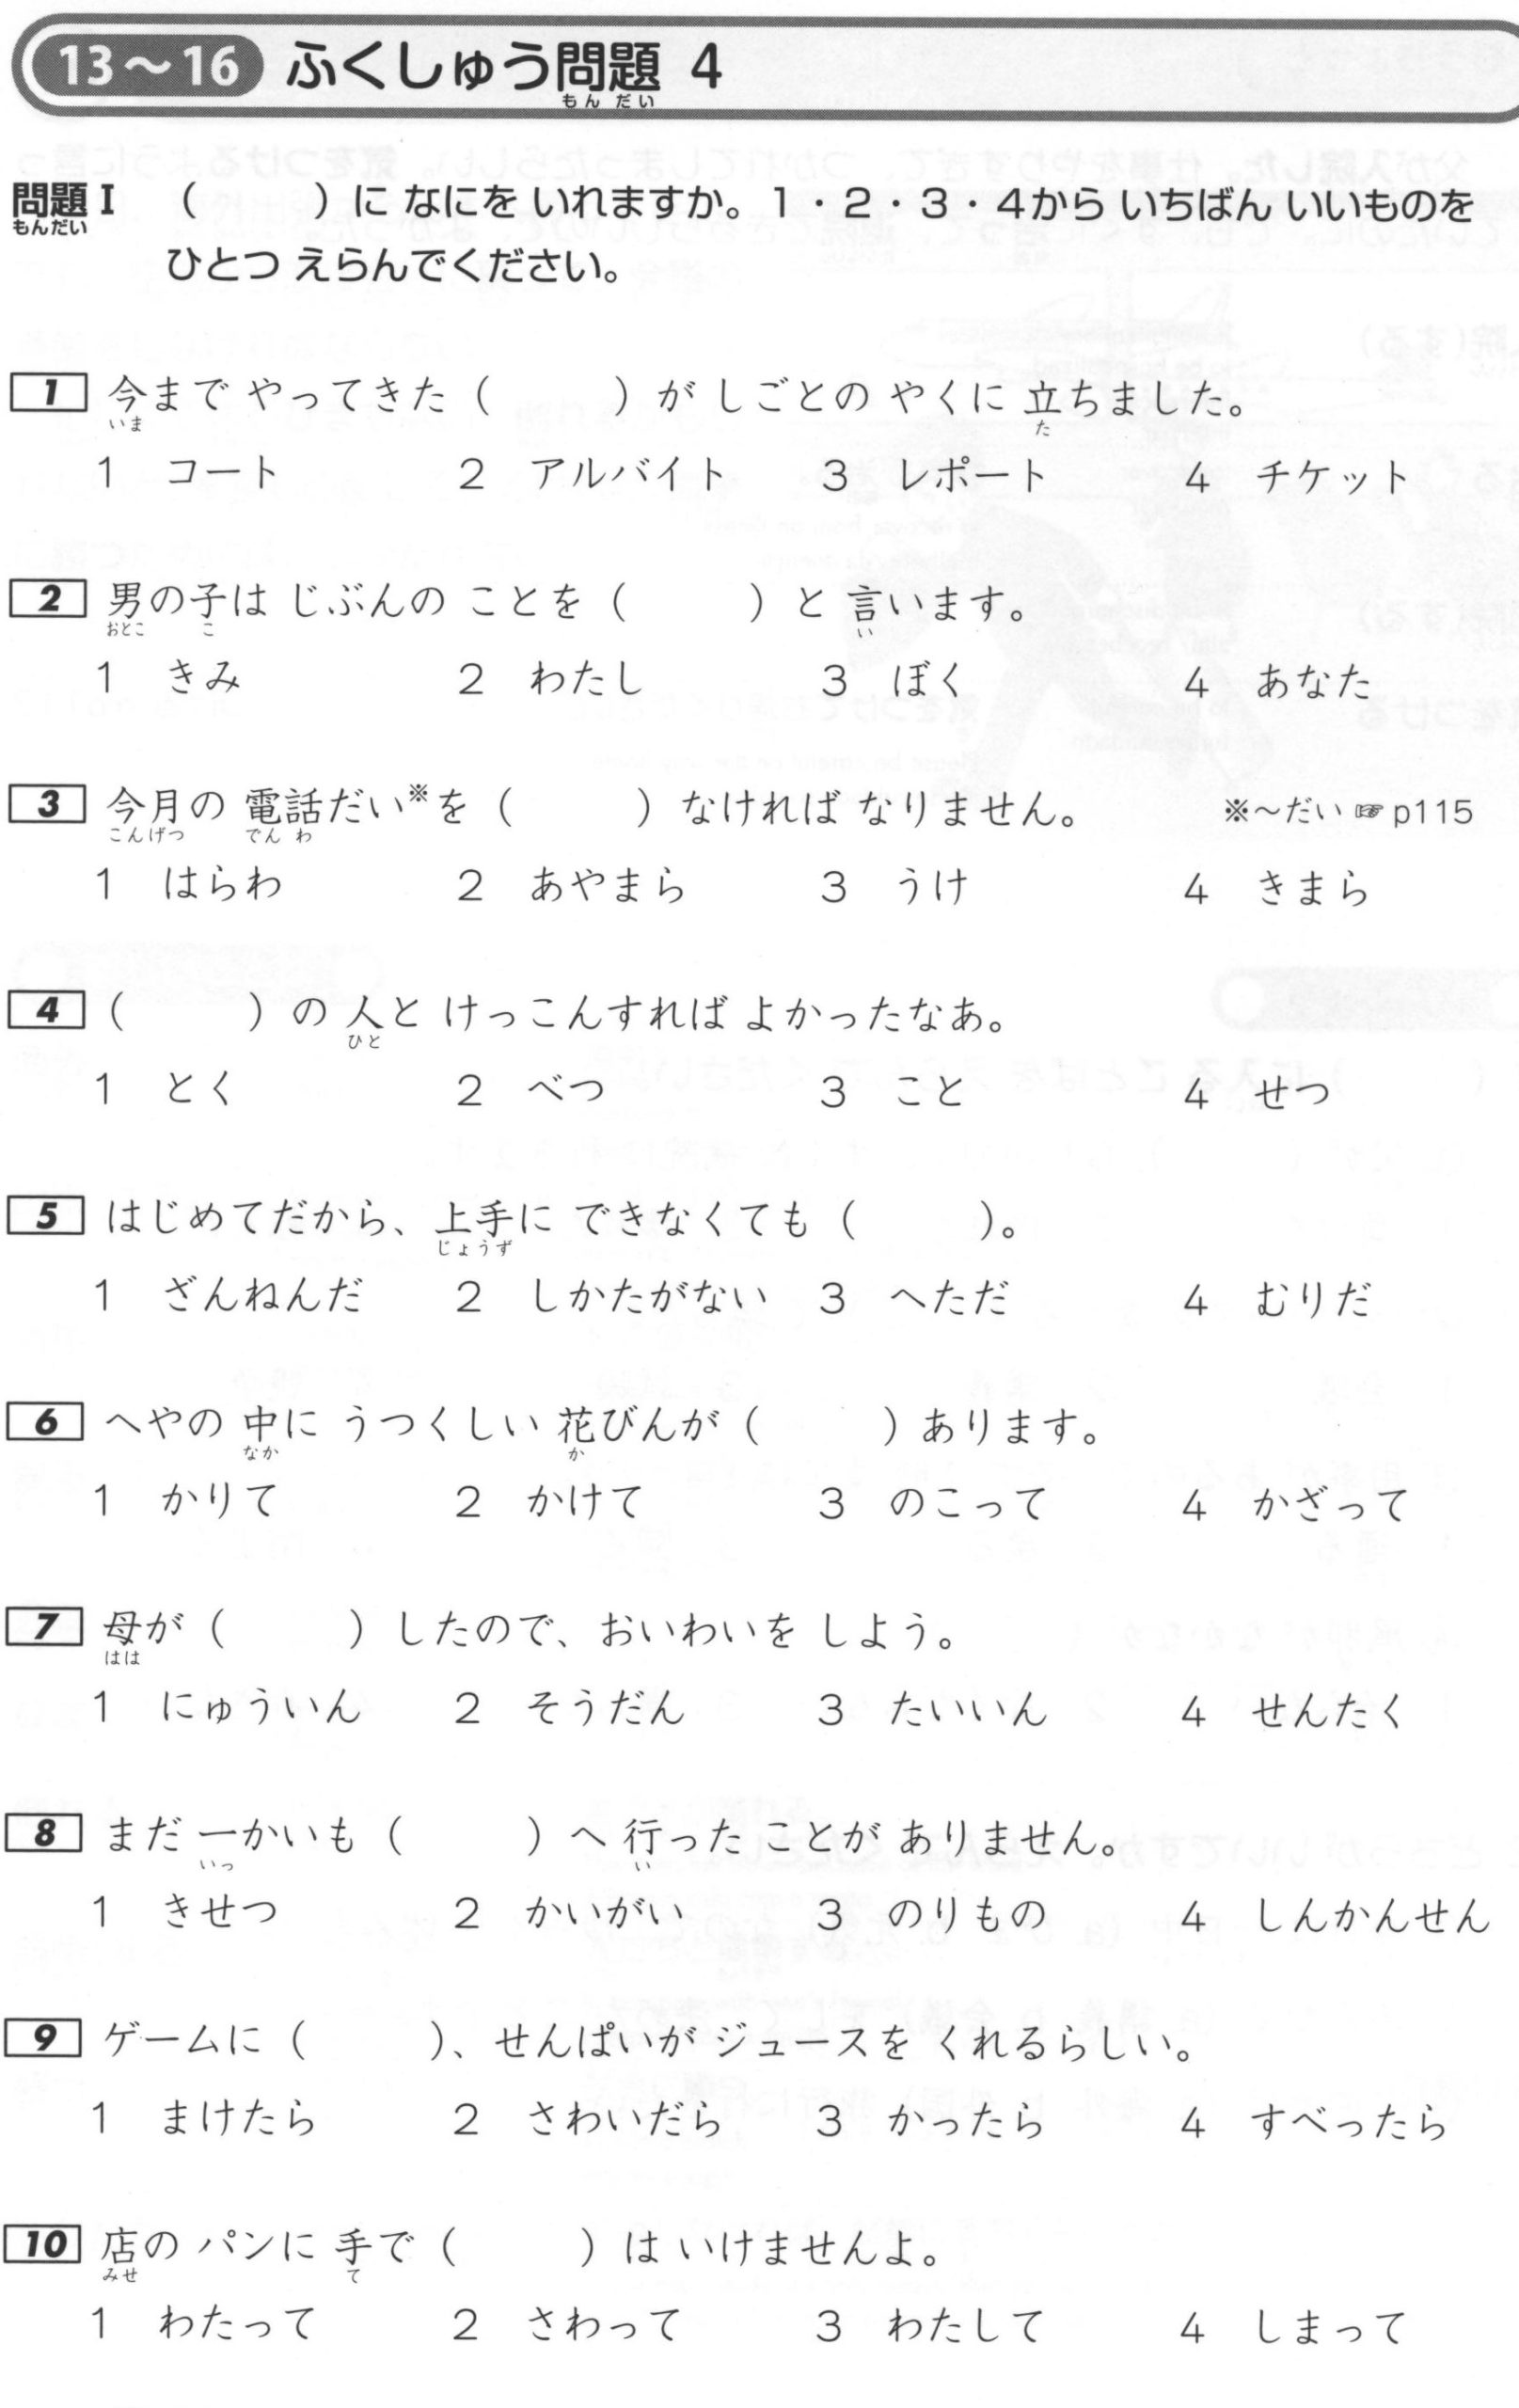 13～16 ふくしゅう問題 4
もんだい
問題 I （　　　）に なにを いれますか。1・2・3・4から いちばん いいものを
もんだい
ひとつ えらんでください。
1 今まで やってきた（　　　）が しごとの やくに 立ちました。
いま　た
1 コート　2 アルバイト　3 レポート　4 チケット
2 男の子は じぶんの ことを（　　　）と 言います。
おとこ　こ　い
1 きみ　2 わたし　3 ぼく　4 あなた
3 今月の 電話だい※を（　　　）なければ なりません。　※～だい ☞ p115
こんげつ　でん わ
1 はらわ　2 あやまら　3 うけ　4 きまら
4 （　　　）の 人と けっこんすれば よかったなあ。
ひと
1 とく　2 べつ　3 こと　4 せつ
5 はじめてだから、上手に できなくても（　　　）。
じょうず
1 ざんねんだ　2 しかたがない　3 へただ　4 むりだ
6 へやの 中に うつくしい 花びんが（　　　）あります。
なか　か
1 かりて　2 かけて　3 のこって　4 かざって
7 母が（　　　）したので、おいわいを しよう。
はは
1 にゅういん　2 そうだん　3 たいいん　4 せんたく
8 まだ 一かいも（　　　）へ 行った ことが ありません。
いっ　い
1 きせつ　2 かいがい　3 のりもの　4 しんかんせん
9 ゲームに（　　　）、せんぱいが ジュースを くれるらしい。
1 まけたら　2 さわいだら　3 かったら　4 すべったら
10 店の パンに 手で（　　　）は いけませんよ。
みせ　て
1 わたって　2 さわって　3 わたして　4 しまって